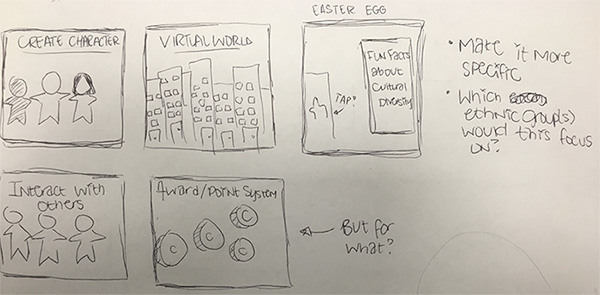 CREATE CHARACTER
VIRTUAL WORLD
EASTER EGG
TAP?
FUN FACTS
about
Cultural
Diversity
• Make it more
specific
• Which
ethnic group(s)
would this focus
on?
Interact with
others
Award/Point System
C
C
C
C
But for
what?